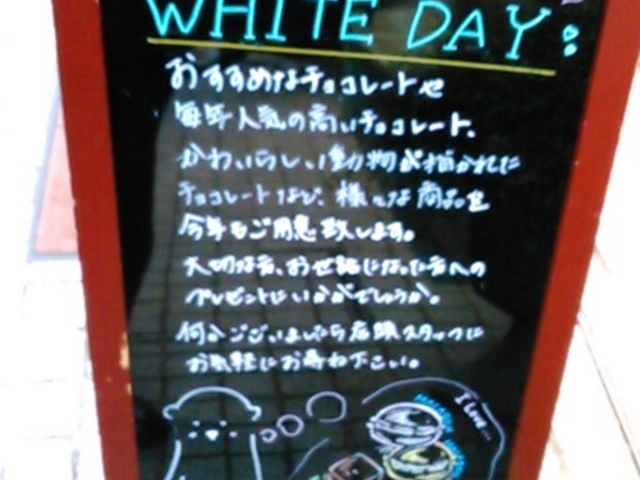 WHITE DAY
おすすめなチョコレートや
毎年人気の高いチョコレート、
かわいらしい動物が描かれた
チョコレートなど、様々な商品を
今年もご用意致します。
大切な方、お世話になった方への
プレゼントにいかがでしょうか。
何かございましたら店頭スタッフに
お気軽にお尋ね下さい。
I Love...